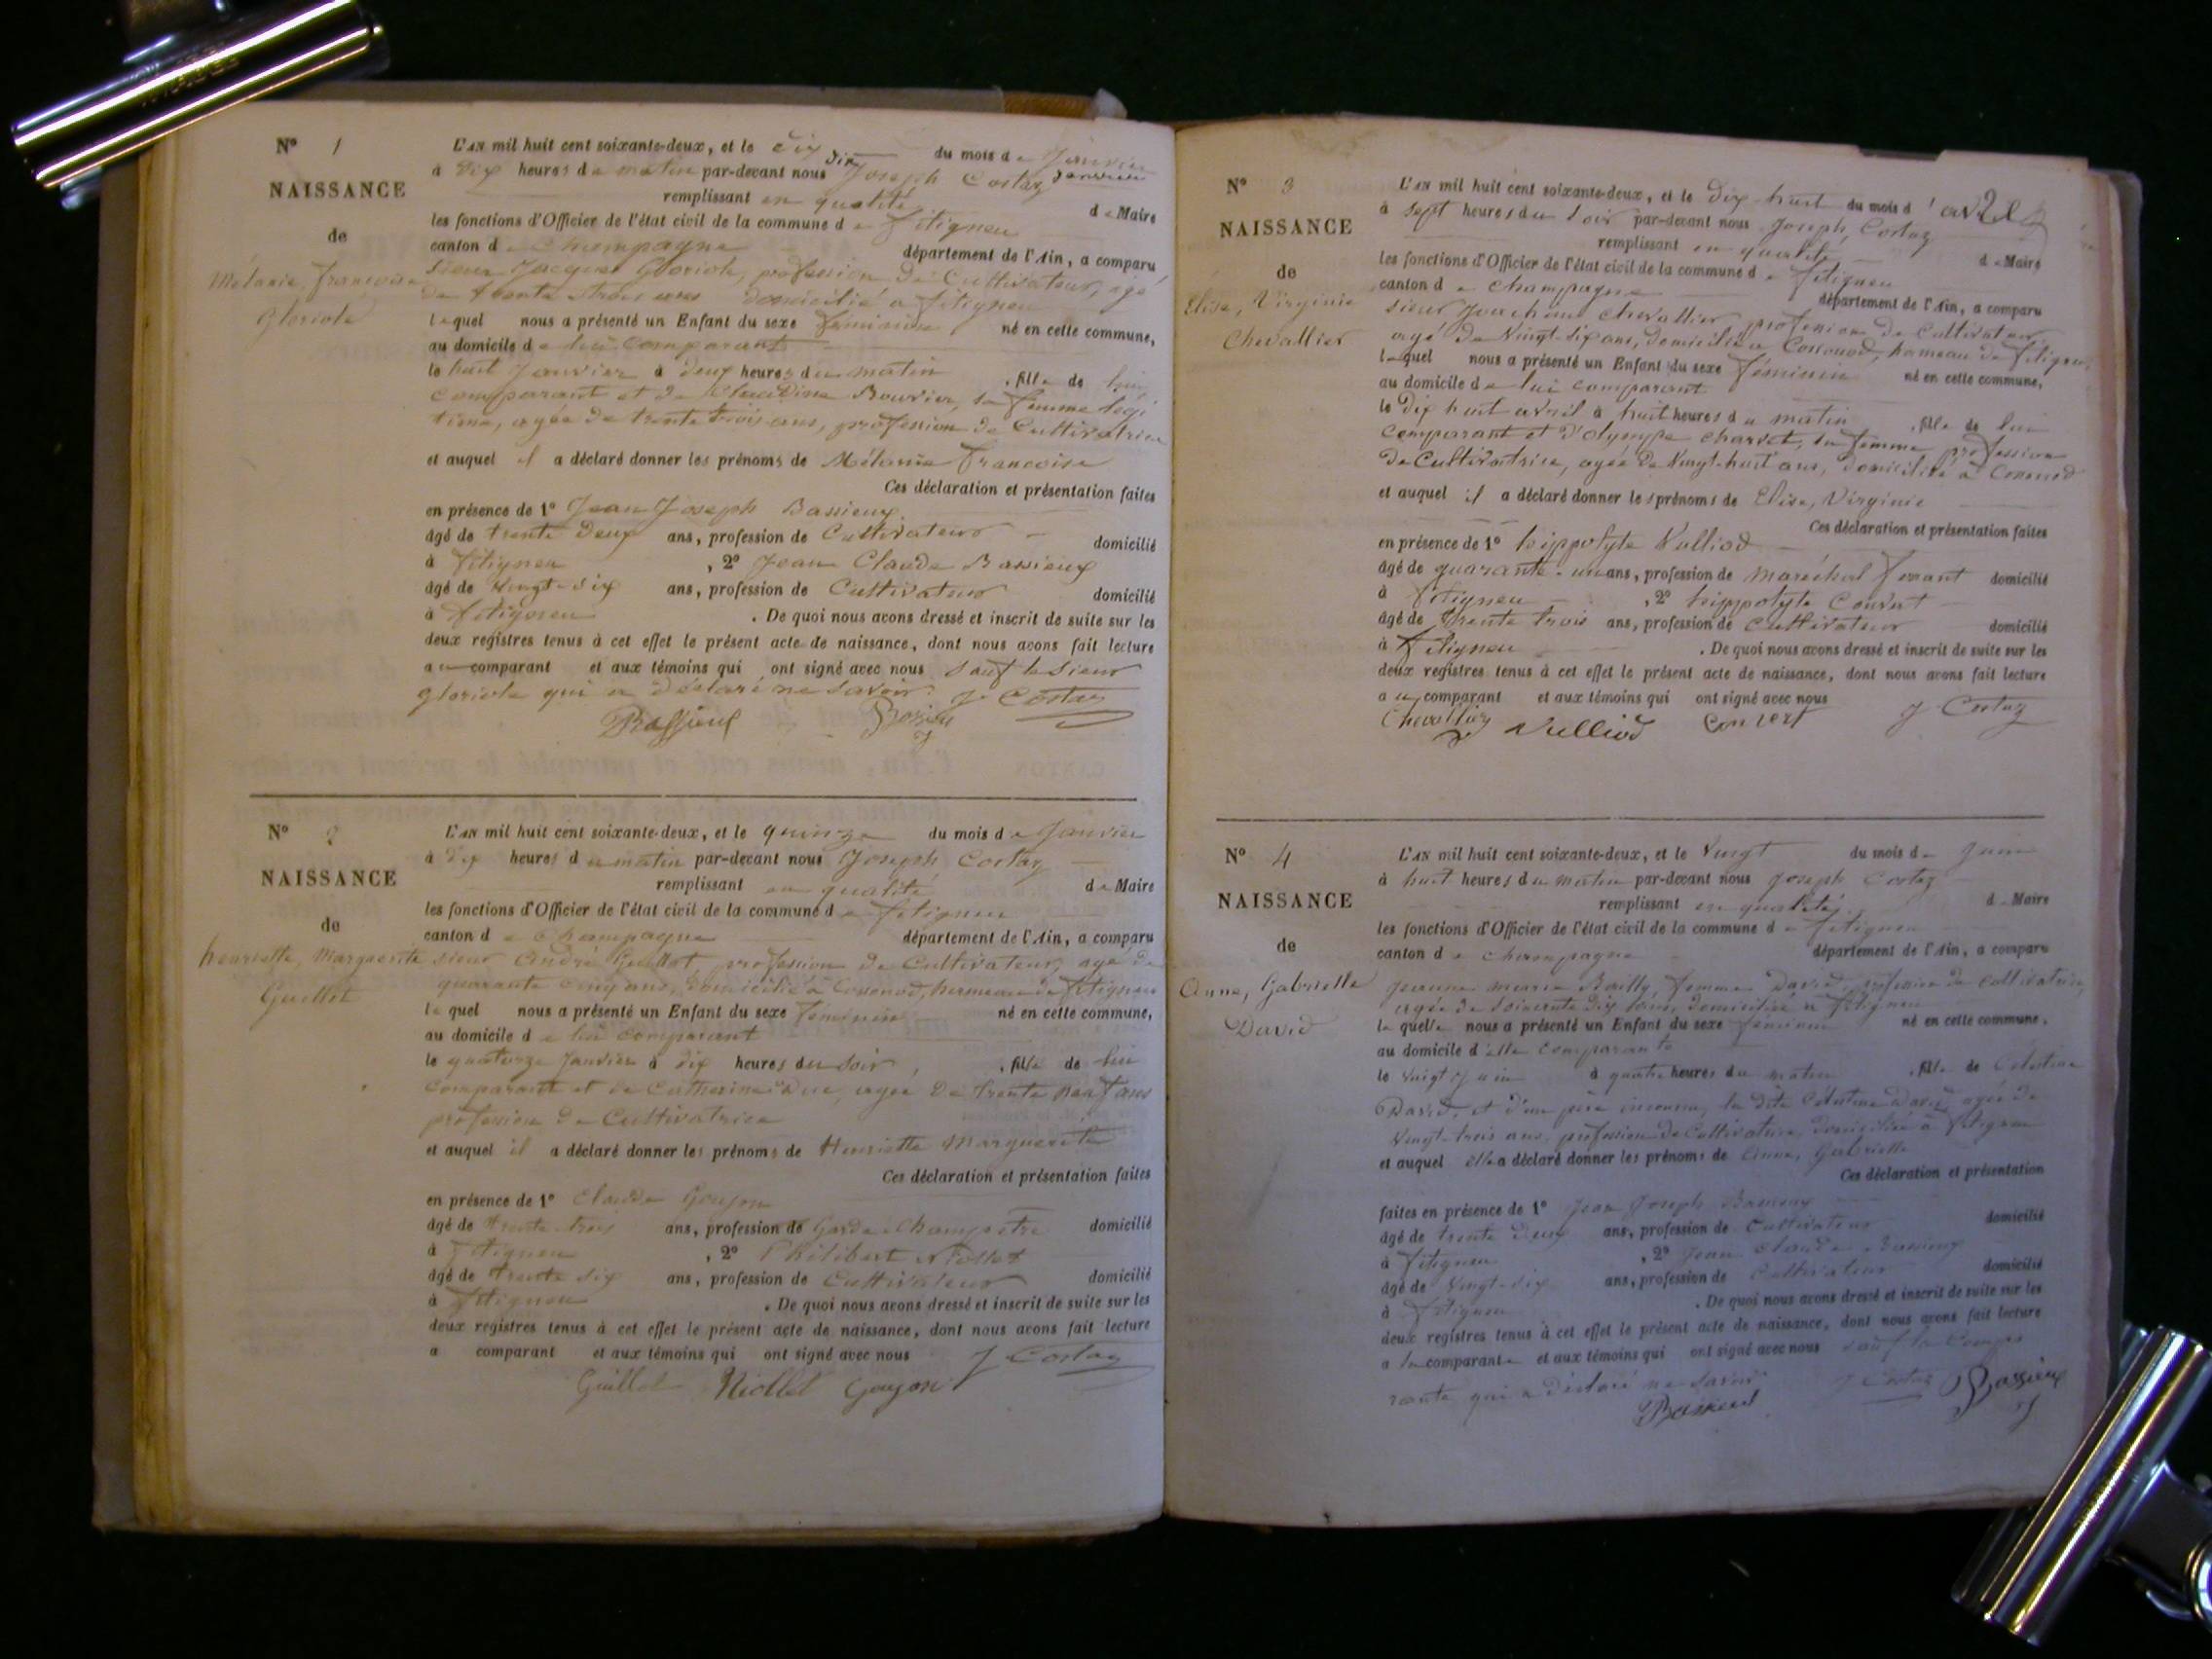 N° 1
NAISSANCE
de
Mélanie, françoise
Gloriole
L'AN mil huit cent soixante-deux, et le dix du mois de Janvier
dix Janvier
à dix heures du matin par-devant nous Joseph Costaz
remplissant en qualité de Maire
les fonctions d'Officier de l'état civil de la commune de fitignieu
canton de Champagne département de l'Ain, a comparu
Sieur Jacques Gloriole, profession de Cultivateur, agé
de trente trois ans domicilié à fitignieu
lequel nous a présenté un Enfant du sexe féminin né en cette commune,
au domicile de lui comparant
le huit Janvier à deux heures du matin , fille de lui
comparant et de Claudine Bouvier, sa femme légi
time, agée de trente trois ans, profession de Cultivatrice
et auquel il a déclaré donner les prénoms de Mélanie françoise
Ces déclaration et présentation faites
en présence de 1° Jean Joseph Bassieux
âgé de trente deux ans, profession de Cultivateur domicilié
à fitignieu , 2° Jean Claude Bassieux
âgé de vingt-six ans, profession de Cultivateur domicilié
à fitignieu . De quoi nous avons dressé et inscrit de suite sur les
deux registres tenus à cet effet le présent acte de naissance, dont nous avons fait lecture
au comparant et aux témoins qui ont signé avec nous sauf le sieur
gloriole qui a déclaré ne savoir. J Costaz
Bassieux
N° 2
NAISSANCE
de
henriette, Marguerite
Guillot
L'AN mil huit cent soixante-deux, et le quinze du mois de Janvier
à dix heures du matin par-devant nous Joseph Costaz
remplissant en qualité de Maire
les fonctions d'Officier de l'état civil de la commune de fitignieu
canton de Champagne département de l'Ain, a comparu
sieur André Guillot, profession de Cultivateur, agé de
quarante cinq ans, domicilié à Cossonod, hameau de fitignieu
lequel nous a présenté un Enfant du sexe féminin né en cette commune,
au domicile de lui comparant
le quatorze Janvier à dix heures du soir , fille de lui
comparant et de Catherine agée de trente neuf ans
profession de Cultivatrice
et auquel il a déclaré donner les prénoms de Henriette Marguerite
Ces déclaration et présentation faites
en présence de 1° Claude Goujon
âgé de trente trois ans, profession de Garde-Champêtre domicilié
à fitignieu , 2° Philibert Niollet
âgé de trente six ans, profession de Cultivateur domicilié
à fitignieu . De quoi nous avons dressé et inscrit de suite sur les
deux registres tenus à cet effet le présent acte de naissance, dont nous avons fait lecture
a comparant et aux témoins qui ont signé avec nous J Costaz
Guillot Niollet Goujon
N° 3
NAISSANCE
de
Elise, Virginie
Chevallier
L'AN mil huit cent soixante-deux, et le dix-huit du mois d'avril
à sept heures du soir par-devant nous Joseph Costaz
remplissant en qualité de Maire
les fonctions d'Officier de l'état civil de la commune de fitignieu
canton de Champagne département de l'Ain, a comparu
sieur Joachim Chevallier, profession de Cultivateur,
agé de Vingt-six ans, domicilié à Cossonod, hameau de fitignieu,
lequel nous a présenté un Enfant du sexe féminin né en cette commune,
au domicile de lui comparant
le dix huit avril à huit heures du matin , fille de lui
comparant et d'olympe charvet, sa femme, profession
de Cultivatrice, agée de Vingt-huit ans, domiciliée à Cossonod
et auquel il a déclaré donner les prénoms de Elise, Virginie
Ces déclaration et présentation faites
en présence de 1° hippolyte Vulliod
âgé de quarante-un ans, profession de maréchal ferrant domicilié
à fitignieu , 2° hippolyte Convert
âgé de trente trois ans, profession de Cultivateur domicilié
à fitignieu . De quoi nous avons dressé et inscrit de suite sur les
deux registres tenus à cet effet le présent acte de naissance, dont nous avons fait lecture
au comparant et aux témoins qui ont signé avec nous
Chevallier Vulliod Convert J Costaz
N° 4
NAISSANCE
de
Anne, Gabrielle
David
L'AN mil huit cent soixante-deux, et le Vingt du mois de Juin
à huit heures du matin par-devant nous Joseph Costaz
remplissant en qualité de Maire
les fonctions d'Officier de l'état civil de la commune de fitignieu
canton de Champagne département de l'Ain, a comparu
Jeanne marie Bailly, femme David, profession de Cultivatrice,
agée de soixante dix ans, domiciliée à fitignieu
laquelle nous a présenté un Enfant du sexe féminin né en cette commune,
au domicile d'elle comparante
le Vingt Juin à quatre heures du matin , fille de Célestine
David, et d'un père inconnu, la dite Célestine David agée de
Vingt-trois ans, profession de Cultivatrice, domiciliée à fitignieu
et auquel elle a déclaré donner les prénoms de Anne, Gabrielle
Ces déclaration et présentation
faites en présence de 1° Jean Joseph Bassieux
âgé de trente deux ans, profession de Cultivateur domicilié
à fitignieu , 2° Jean Claude Bassieux
âgé de Vingt-six ans, profession de Cultivateur domicilié
à fitignieu . De quoi nous avons dressé et inscrit de suite sur les
deux registres tenus à cet effet le présent acte de naissance, dont nous avons fait lecture
a la comparante et aux témoins qui ont signé avec nous sauf la compa
rante qui a déclaré ne savoir J Costaz Bassieux
Bassieux